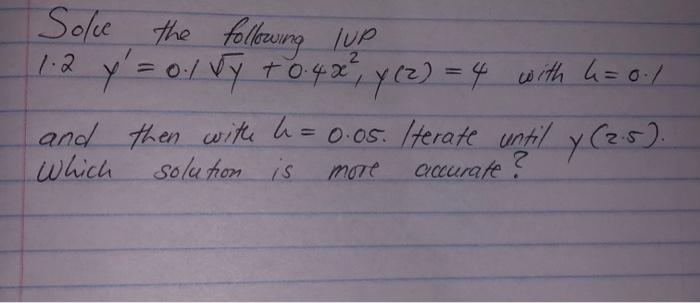 Solve the following IVP
1.2 y' = 0.1 √y + 0.4x², y(2) = 4 with h = 0.1
and then with h = 0.05. Iterate until y(2.5).
Which solution is more accurate?